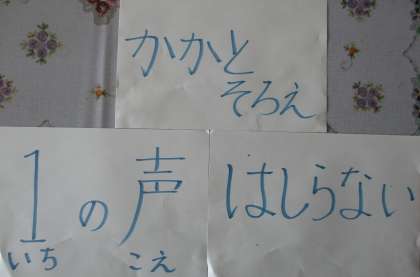 かかと
そろえ
1の声
いち こえ
はしらない